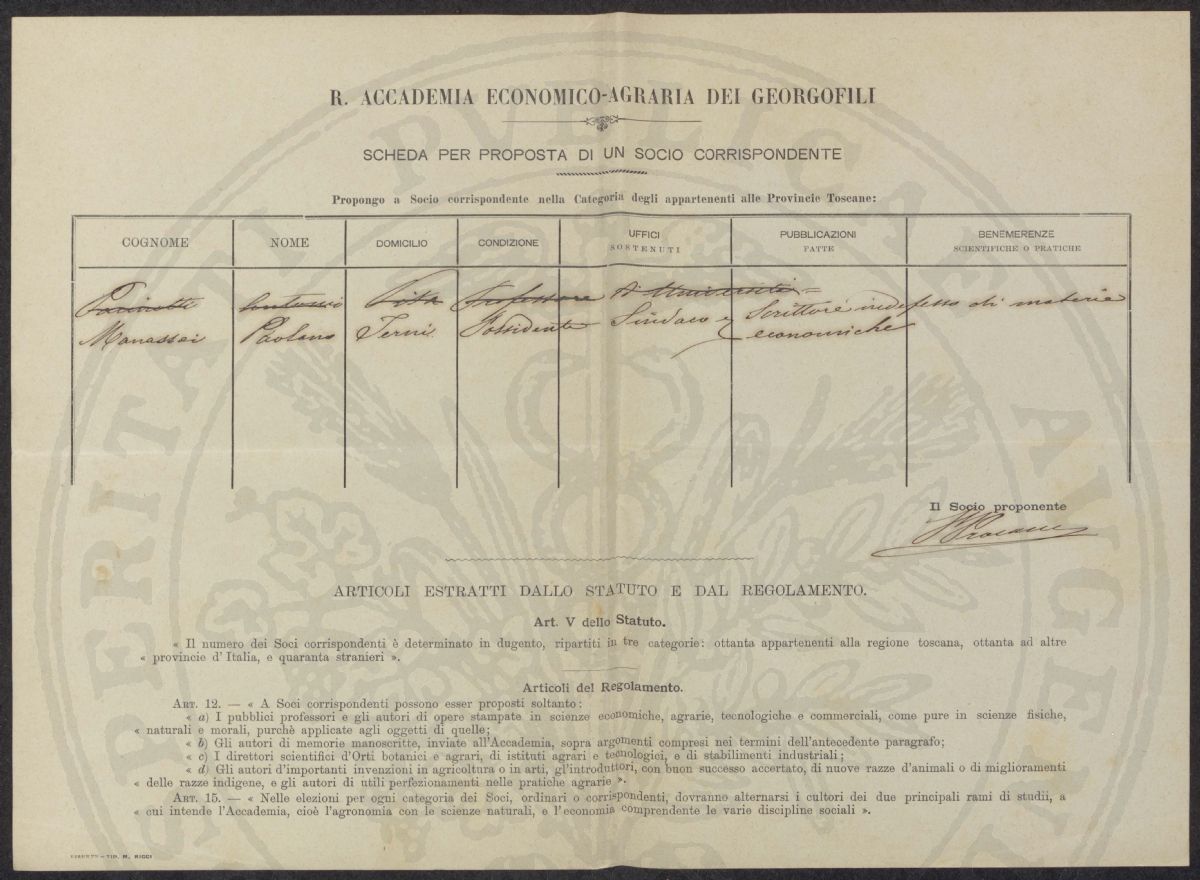 R. ACCADEMIA ECONOMICO-AGRARIA DEI GEORGOFILI
SCHEDA PER PROPOSTA DI UN SOCIO CORRISPONDENTE
Propongo a Socio corrispondente nella Categoria degli appartenenti alle Provincie Toscane:
COGNOME NOME DOMICILIO CONDIZIONE UFFICI SOSTENUTI PUBBLICAZIONI FATTE BENEMERENZE SCIENTIFICHE O PRATICHE
Pacinotti Pisa Professore
Manassei Paolano Terni Possidente Sindaco e Scrittore indefesso di materie
economiche
Il Socio proponente
ARTICOLI ESTRATTI DALLO STATUTO E DAL REGOLAMENTO.
Art. V dello Statuto.
« Il numero dei Soci corrispondenti è determinato in dugento, ripartiti in tre categorie: ottanta appartenenti alla regione toscana, ottanta ad altre
« provincie d'Italia, e quaranta stranieri ».
Articoli del Regolamento.
ART. 12. — « A Soci corrispondenti possono esser proposti soltanto:
« a) I pubblici professori e gli autori di opere stampate in scienze economiche, agrarie, tecnologiche e commerciali, come pure in scienze fisiche,
« naturali e morali, purchè applicate agli oggetti di quelle;
« b) Gli autori di memorie manoscritte, inviate all'Accademia, sopra argomenti compresi nei termini dell'antecedente paragrafo;
« c) I direttori scientifici d'Orti botanici e agrari, di istituti agrari e tecnologici, e di stabilimenti industriali;
« d) Gli autori d'importanti invenzioni in agricoltura o in arti, gl'introduttori, con buon successo accertato, di nuove razze d'animali o di miglioramenti
« delle razze indigene, e gli autori di utili perfezionamenti nelle pratiche agrarie ».
ART. 15. — « Nelle elezioni per ogni categoria dei Soci, ordinari o corrispondenti, dovranno alternarsi i cultori dei due principali rami di studii, a
« cui intende l'Accademia, cioè l'agronomia con le scienze naturali, e l'economia comprendente le varie discipline sociali ».
FIRENZE - TIP. M. RICCI